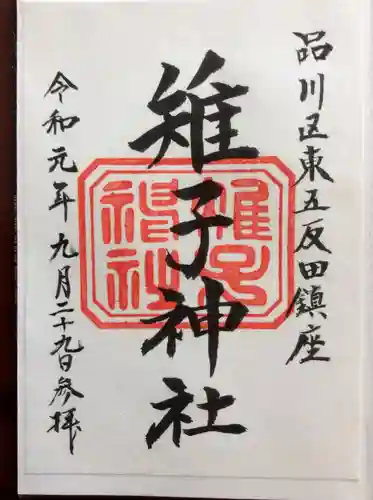 品川区東五反田鎮座
雉子神社
雉子
神社
令和元年九月二十九日参拝